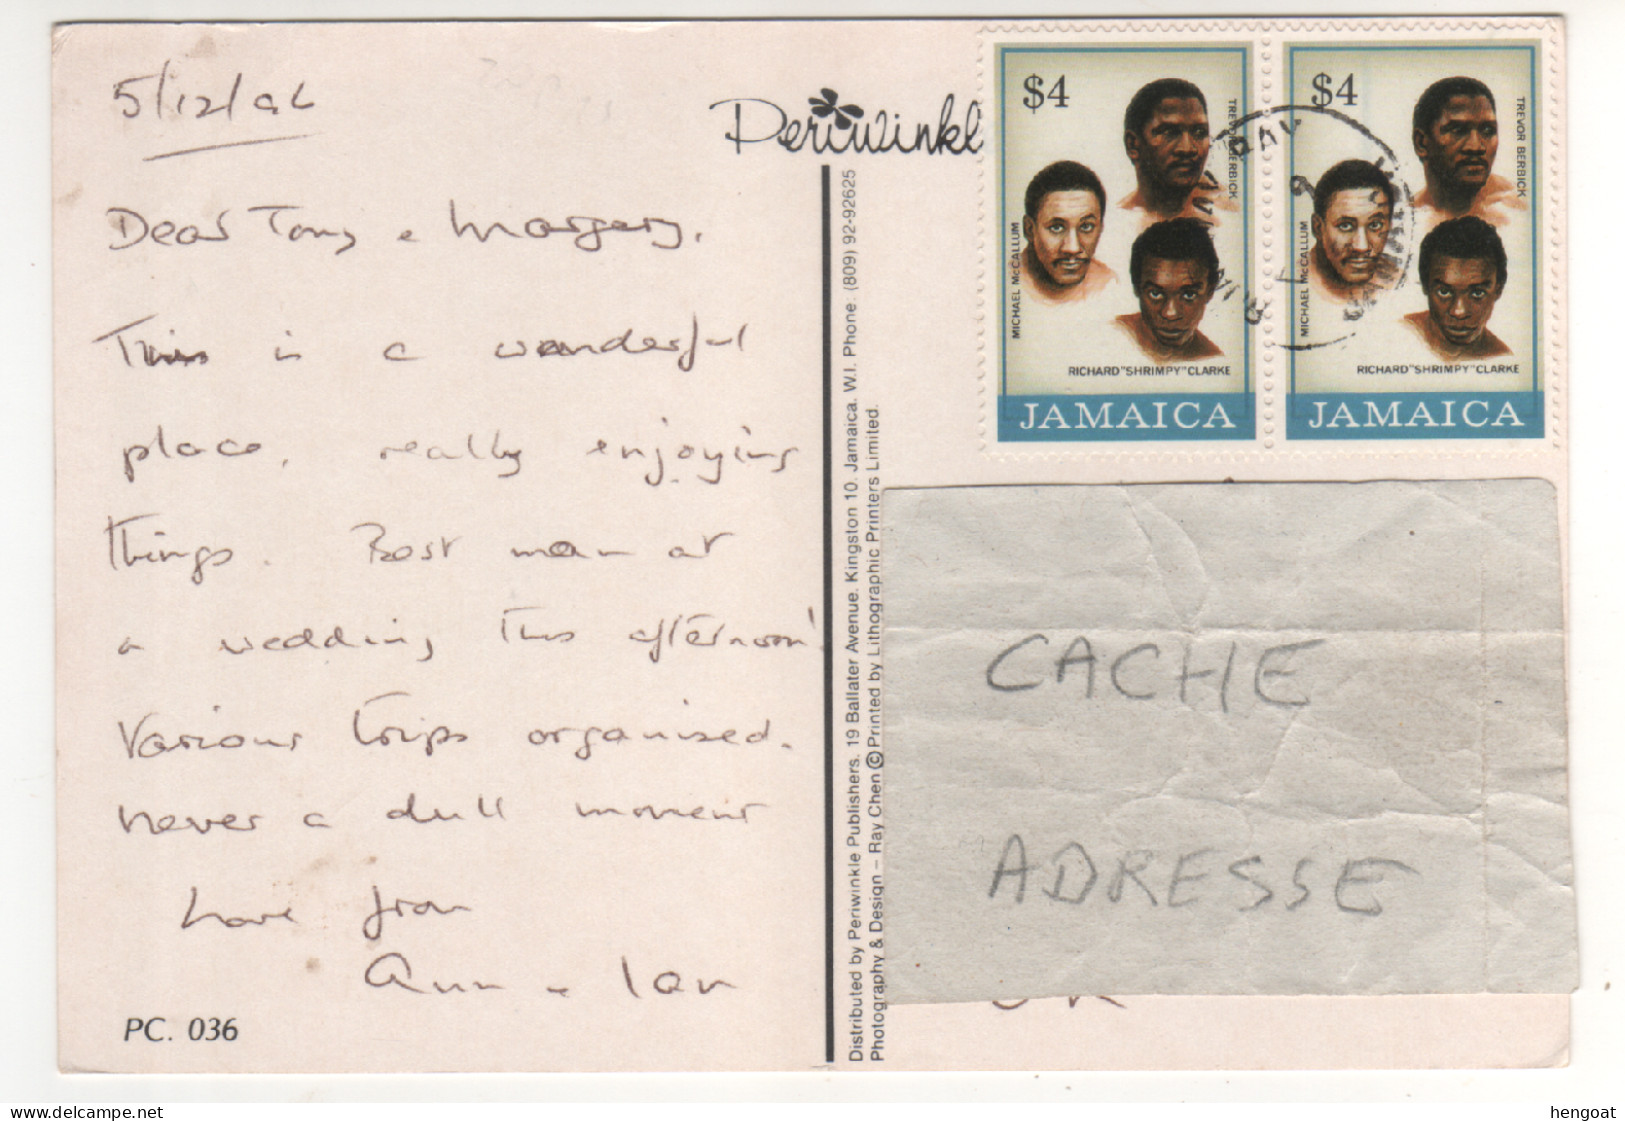 5/12/96
Dear Tony & Margery,
This is a wonderful
place, really enjoying
things. Best man at
a wedding this afternoon!
Various trips organised.
never a dull moment
Love from
Ann & Ian
PC. 036
Periwinkl
Distributed by Periwinkle Publishers. 19 Ballater Avenue. Kingston 10. Jamaica. W.I. Phone. (809) 92-92625
Photography & Design – Ray Chen © Printed by Lithographic Printers Limited.
$4
TREVOR BERBICK
MICHAEL McCALLUM
RICHARD "SHRIMPY" CLARKE
JAMAICA
$4
TREVOR BERBICK
MICHAEL McCALLUM
RICHARD "SHRIMPY" CLARKE
JAMAICA
CACHE
ADRESSE
UK
delcampe.net
hengoat